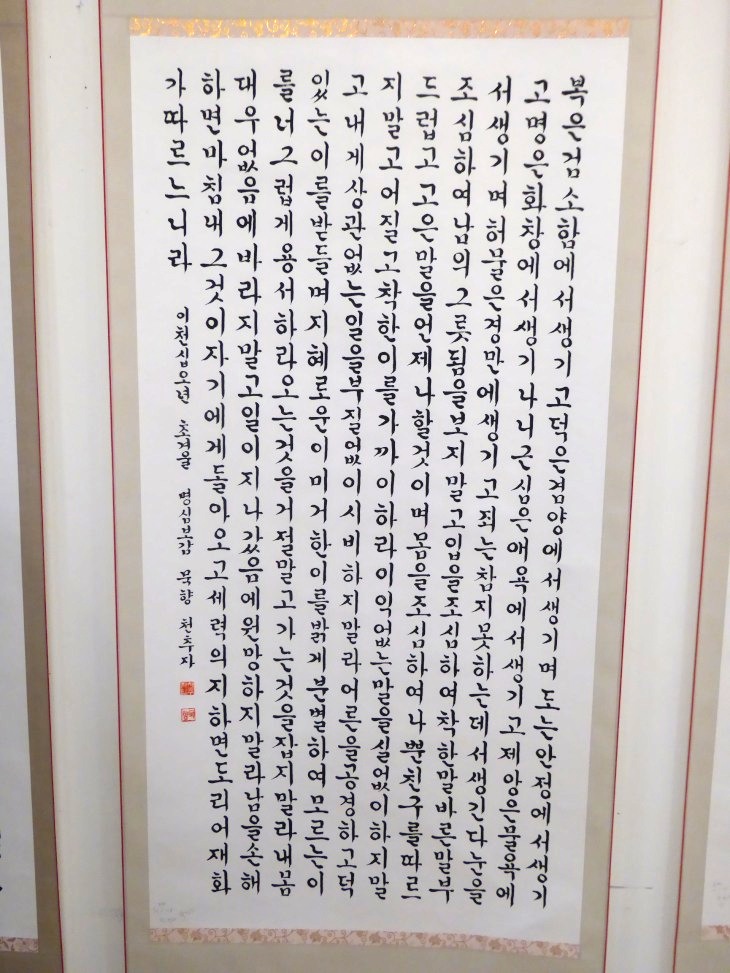 복은검소함에서생기고덕은겸양에서생기며도는안정에서생기
고명은화창에서생기나니근심은애욕에서생기고제앙은물욕에
서생기며허물은경만에생기고죄는참지못하는데서생긴다눈을
조심하여남의그릇됨을보지말고입을조심하여착한말바른말부
드럽고고은말을언제나할것이며몸을조심하여나쁜친구를따르
지말고어질고착한이를가까이하라이익없는말을실없이하지말
고내게상관없는일을부질없이시비하지말라어른을공경하고덕
있는이를받들며지혜로운이미거한이를밝게분별하여모르는이
를너그럽게용서하라오는것을거절말고가는것을잡지말라내몸
대우없음에바라지말고일이지나갔음에원망하지말라남을손해
하면마침내그것이자기에게돌아오고세력의지하면도리어재화
가따르느니라
이천십오년 초겨울 명심보감 묵향 천추자